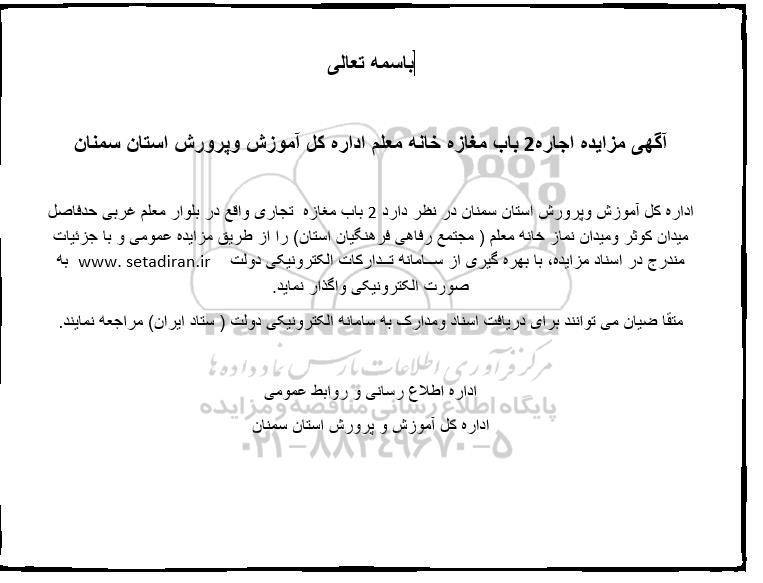 باسمه تعالی
آگهی مزایده اجاره2 باب مغازه خانه معلم اداره کل آموزش وپرورش استان سمنان
اداره کل آموزش وپرورش استان سمنان در نظر دارد 2 باب مغازه تجاری واقع در بلوار معلم غربی حدفاصل
میدان کوثر ومیدان نماز خانه معلم ( مجتمع رفاهی فرهنگیان استان) را از طریق مزایده عمومی و با جزئیات
مندرج در اسناد مزایده، با بهره گیری از ســامانه تــدارکات الکترونیکی دولت www. setadiran.ir به
صورت الکترونیکی واگذار نماید.
متقا ضیان می توانند برای دریافت اسناد ومدارک به سامانه الکترونیکی دولت ( ستاد ایران) مراجعه نمایند.
ParsNamadData
مرکز فرآوری اطلاعات پارس نماد داده ها
اداره اطلاع رسانی و روابط عمومی
پایگاه اطلاع رسانی مناقصه و مزایده
اداره کل آموزش و پرورش استان سمنان
۰۲۱-۸۸۳۴۹۶۷۰-۵